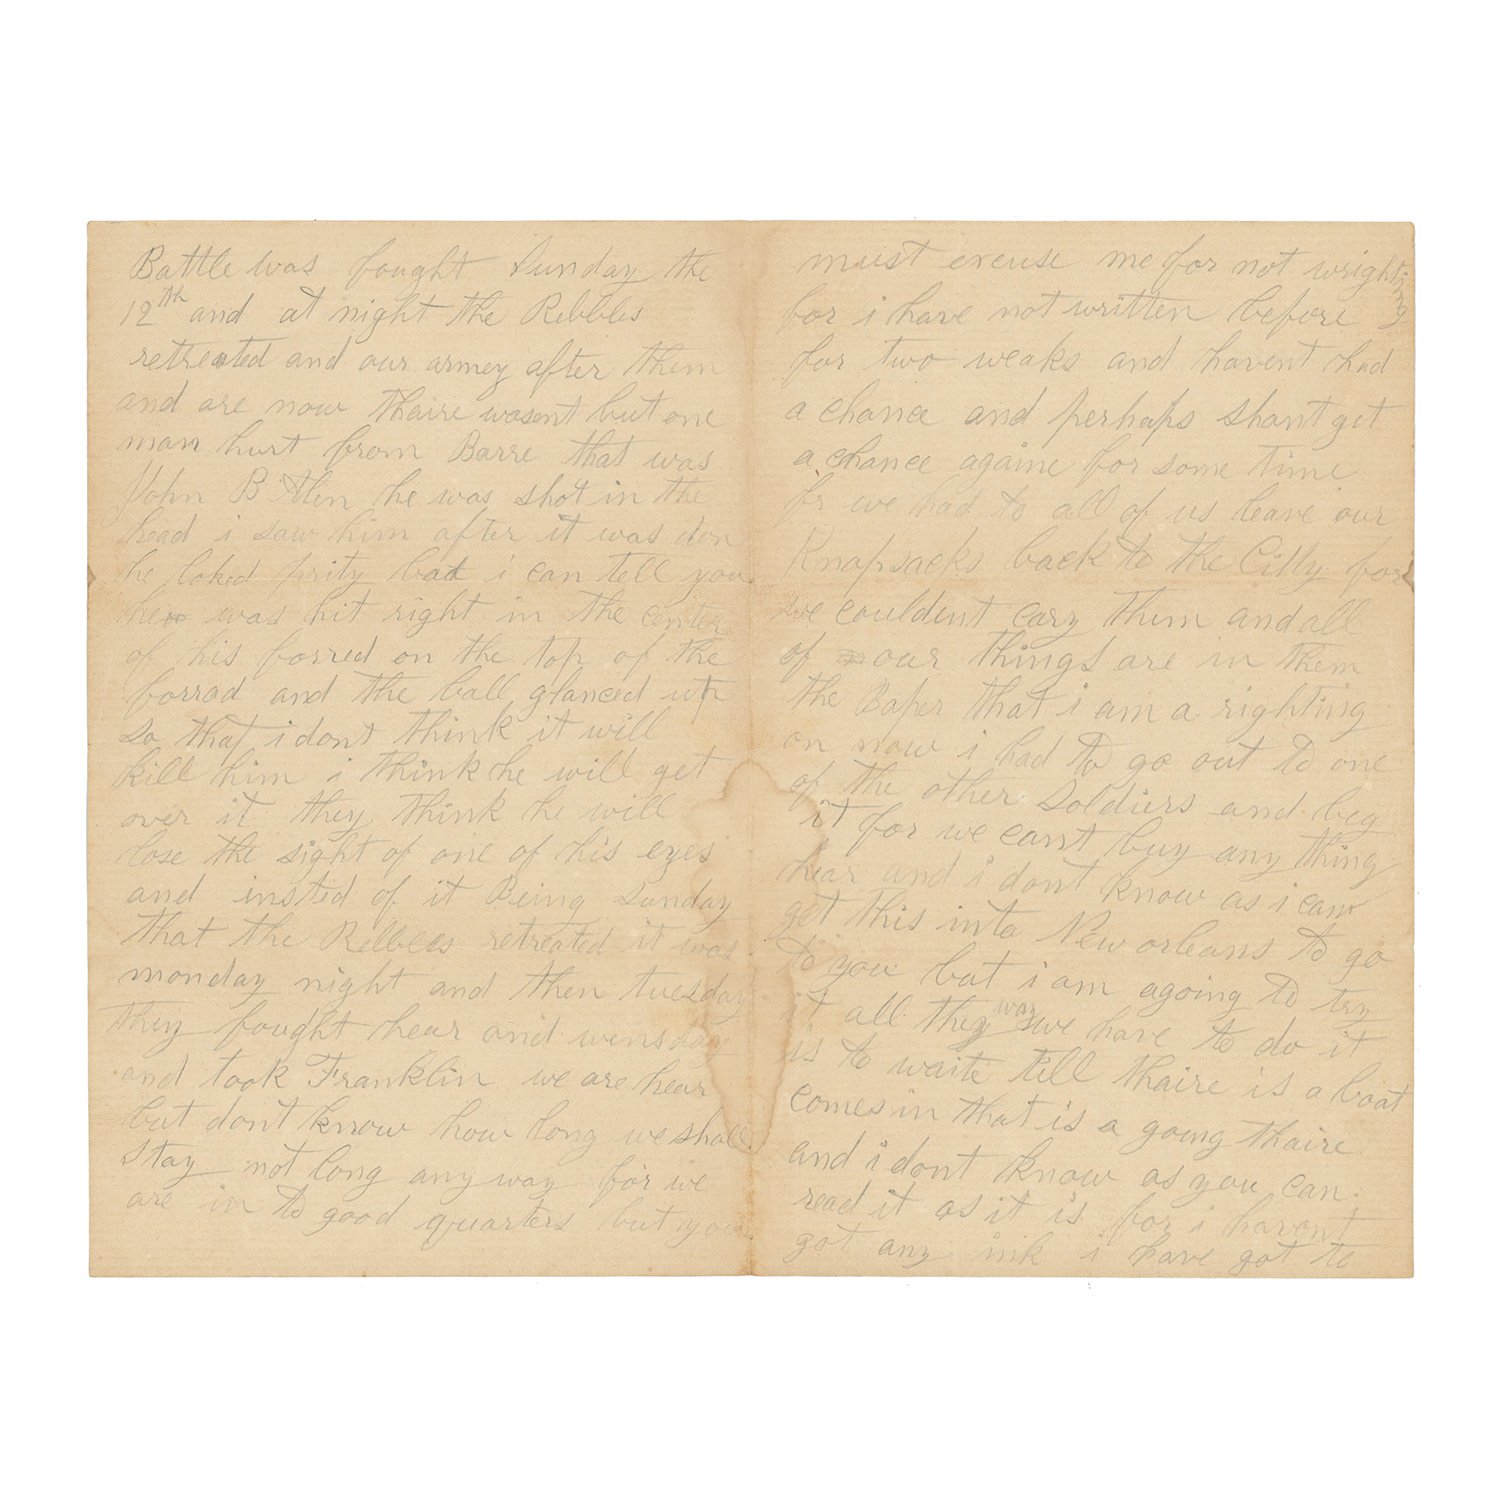 Battle was fought Sunday the
12th and at night the Rebbles
retreated and our army after them
and are now thaire wasent but one
man hurt from Barre that was
John B Allen he was shot in the
head i saw him after it was don
he loked prity bad i can tell you
he was hit right in the center
of his forred on the top of the
forrad and the ball glanced up
so that i dont think it will
kill him i think he will get
over it they think he will
lose the sight of one of his eyes
and insted of it Being Sunday
that the Rebbels retreated it was
monday night and then tuesday
they fought hear and winsday
and took Franklin we are hear
but don't know how long we shall
stay not long any way for we
are in to good quarters but you
must excuse me for not wrighting
for i have not written before
for two weaks and havent had
a chance and perhaps shant get
a chance againe for some time
for we had to all of us leave our
Knapsacks back to the Citty for
we couldent cary them and all
of our things are in them
the Paper that i am a righting
on now i had to go out to one
of the other Soldiers and beg
it for we cant buy any thing
hear and i dont know as i can
get this into New orleans to go
to you but i am agoing to try
it all the way we have to do it
is to waite till thaire is a boat
comes in that is a going thaire
and i dont know as you can
read it as it is for i havent
got any ink i have got to